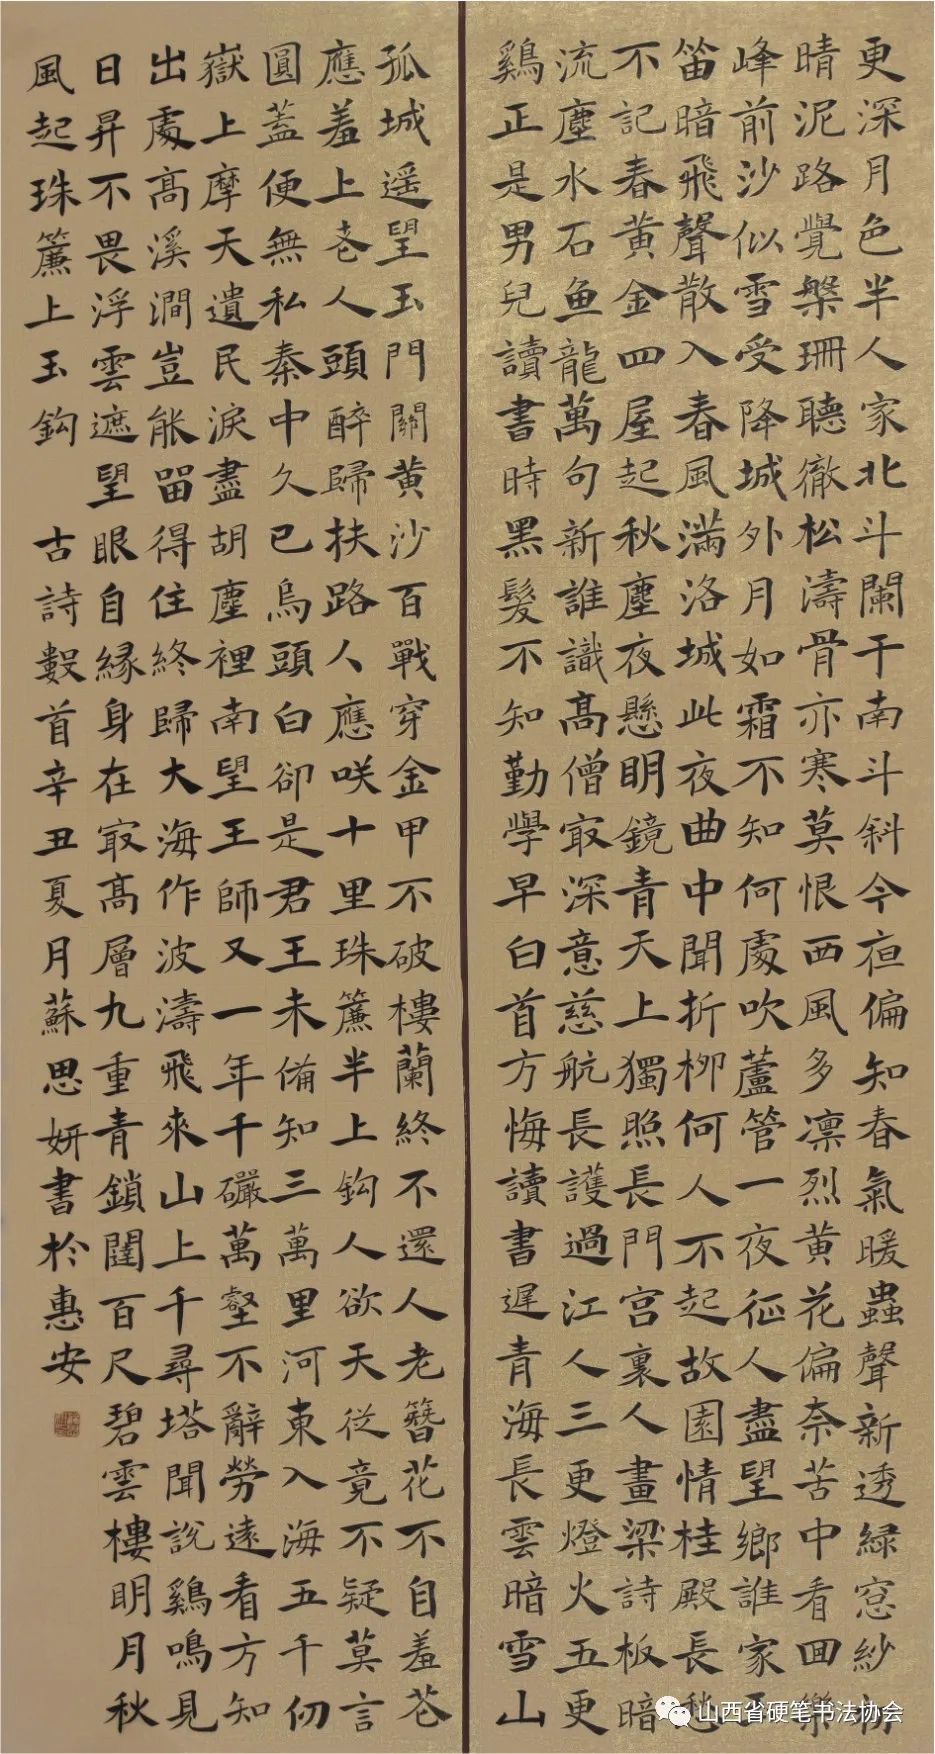 更深月色半人家北斗闌干南斗斜今亱偏知春氣暖蟲聲新透緑窓紗初
晴泥路覺槃珊聽徹松濤骨亦寒莫恨西風多凛烈黄花偏奈苦中看回樂
峰前沙似雪受降城外月如霜不知何處吹蘆管一夜征人盡望鄉誰家玉
笛暗飛聲散入春風滿洛城此夜曲中聞折柳何人不起故園情桂殿長愁
不記春黄金四屋起秋塵夜懸明鏡青天上獨照長門宫裏人畫梁詩板暗
流塵水石魚龍萬句新誰識高僧冣深意慈航長護過江人三更燈火五更
鷄正是男兒讀書時黑髮不知勤學早白首方悔讀書遲青海長雲暗雪山
孤城遥望玉門關黄沙百戰穿金甲不破樓蘭終不還人老簪花不自羞花
應羞上老人頭醉歸扶路人應咲十里珠簾半上鈎人欲天從竟不疑莫言
圓蓋便無私秦中久已烏頭白卻是君王未備知三萬里河東入海五千仞
嶽上摩天遺民淚盡胡塵裡南望王師又一年千巖萬壑不辭勞遠看方知
出處高溪澗豈能留得住終歸大海作波濤飛來山上千尋塔聞說鷄鳴見
日昇不畏浮雲遮望眼自緣身在冣高層九重青鎖闥百尺碧雲樓明月秋
風起珠簾上玉鈎 古詩數首辛丑夏月蘇思妍書於惠安
山西省硬笔书法协会